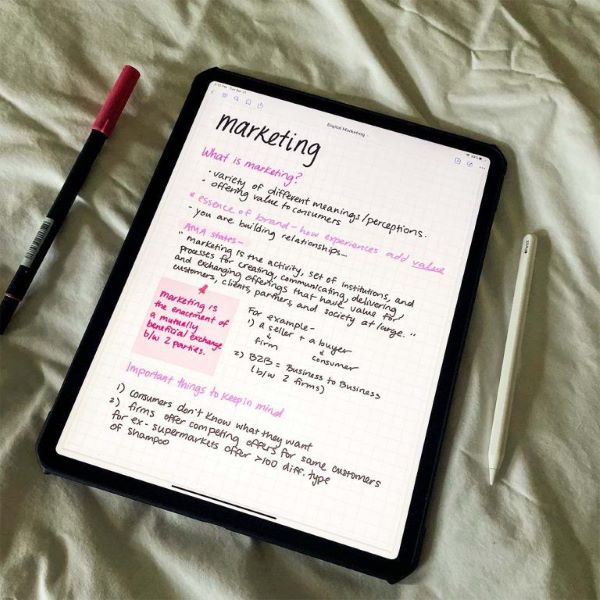 English Marketing
marketing
What is marketing?
• variety of different meanings/perceptions.
• offering value to consumers
* essence of brand - how experiences add value
- you are building relationships -
AMA states -
"marketing is the activity, set of institutions, and
processes for creating, communicating, delivering
and exchanging offerings that have value for
customers, clients, partners, and society at large."
marketing is
the enactment of
a mutually
beneficial exchange
b/w 2 parties.
For example -
1) a seller + a buyer
↓ ↓
firm consumer
2) B2B = Business to Business
(b/w 2 firms)
Important things to keep in mind
1) consumers don't know what they want
2) firms offer competing offers for same customers
for ex - supermarkets offer >100 diff. type
of shampoo